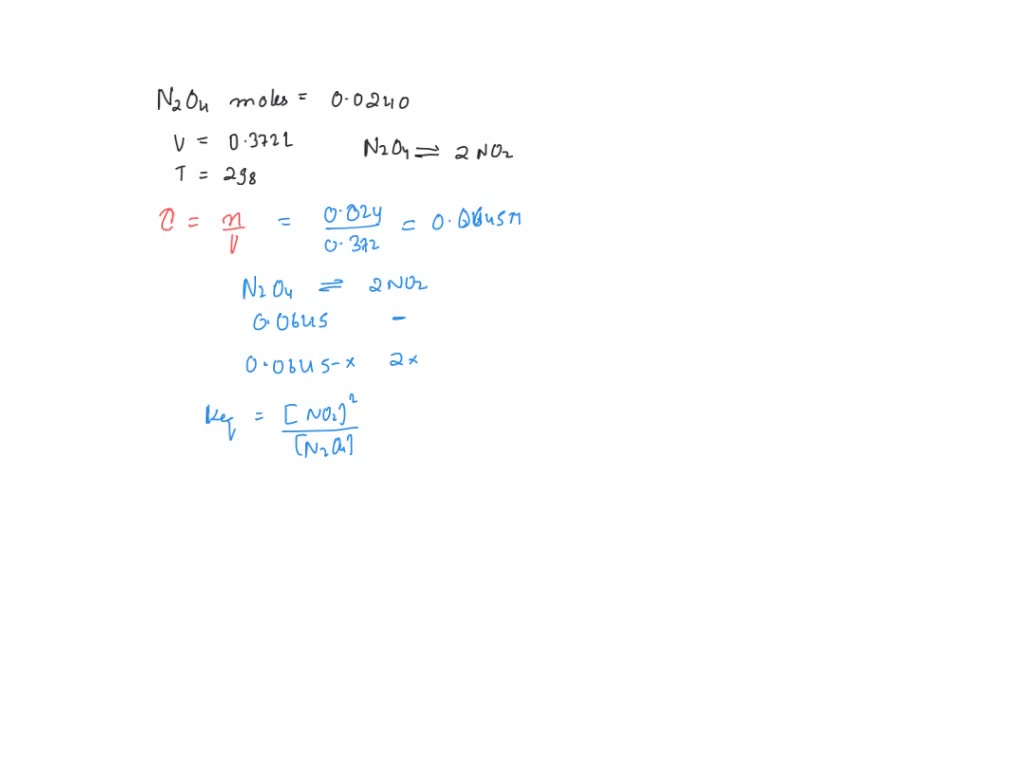 N₂O₄ moles = 0.0240
V = 0.372L
N₂O₄ ⇌ 2NO₂
T = 298
C = n/V = 0.024/0.372 = 0.0645M
N₂O₄ ⇌ 2NO₂
0.0645 -
0.0645-x 2x
Keq = [NO₂]²/[N₂O₄]